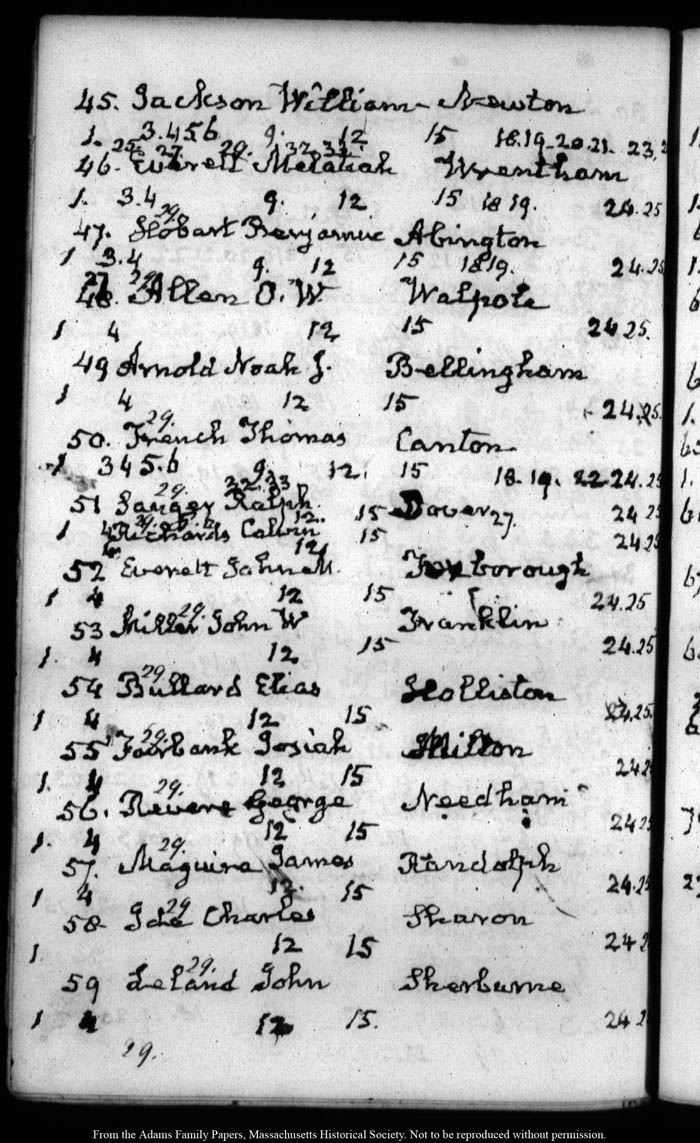 45. Jackson William - Newton
1. 3.4 5 6 9. 12 15 18.19.20.21. 23.
25. 27. 29. 32. 33.
46. Everett Melatiah Wrentham
1. 3.4 9. 12 15 18 19. 24.25
29.
47. Hobart Benjamin Abington
1 3.4 9. 12 15 18 19. 24.25
27 29.
48. Allen O. W. Walpole
1 4 12 15 24 25.
49 Arnold Noah J. Bellingham
1 4 12 15 24.25.
29.
50. French Thomas Canton
1 3 4 5.6 9. 12. 15 18.19. 22 24.25
29. 32.33
51 Ralph Dover 27.
12. 15 24 25
1 4 Richards Calvin 15 24.25
12
52 Everett John M. Foxborough
1 4 12 15 24.25
29.
53 Miller John W Franklin
1 4 12 15 24.25
29.
54 Bullard Elias Holliston
1 4 12 15 24.25.
29.
55 Fairbank Josiah Milton
1. 4 12 15 24 2
29.
56. Revere George Needham
1. 4 12 15 24 25
29.
57. Maguire James Randolph
1 4 12. 15 24.25
29
58. Ide Charles Sharon
1. 12 15 24 2
29.
59 Leland John Sherburne
1 4 12 15. 24 2
29.
From the Adams Family Papers, Massachusetts Historical Society. Not to be reproduced without permission.